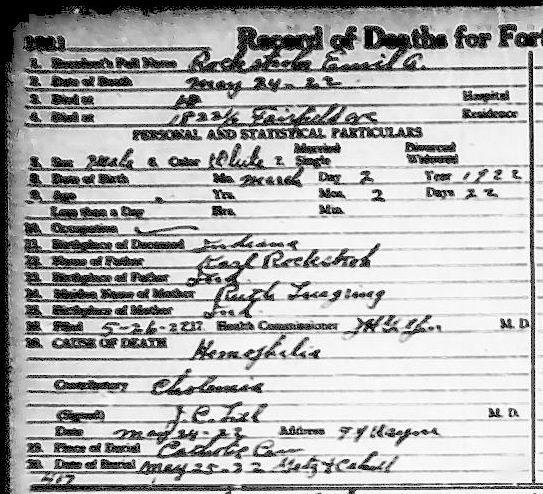 Record of Deaths for Fort
1. Decedent's Full Name Rockstroh Emil A.
2. Date of Death May 24-22
3. Died at Hospital
4. Died at 1822½ Fairfield ave Residence
PERSONAL AND STATISTICAL PARTICULARS
5. Sex Male 6. Color White 7. Married Single Divorced Widowed
8. Date of Birth Mo. March Day 2 Year 1922
9. Age Yrs. Mos. 2 Days 22
Less than a Day Hrs. Min.
10. Occupation
11. Birthplace of Deceased Indiana
12. Name of Father Karl Rockstroh
13. Birthplace of Father Ind
14. Maiden Name of Mother Ruth
15. Birthplace of Mother Ind
16. Filed 5-26-22 17. Health Commissioner M. D.
CAUSE OF DEATH Hemophilia
Contributory
(Signed) J. Cahill M. D.
Date May 24-22 Address Ft Wayne
Place of Burial Catholic Cem
Date of Burial May 25-22 Getz & Cahill